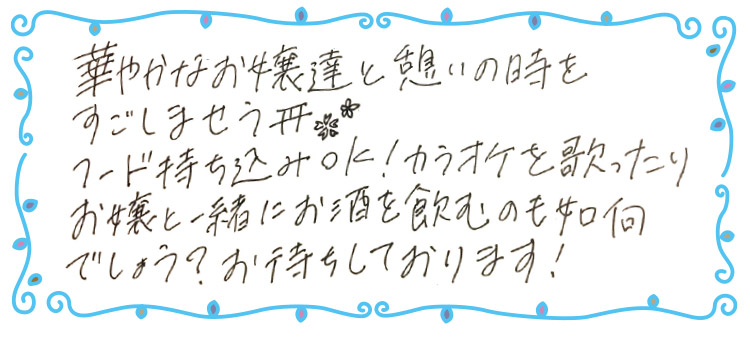 華やかなお嬢達と憩いの時を
すごしませう
フード持ち込みOK!カラオケを歌ったり
お嬢と一緒にお酒を飲むのも如何
でしょう?お待ちしております!